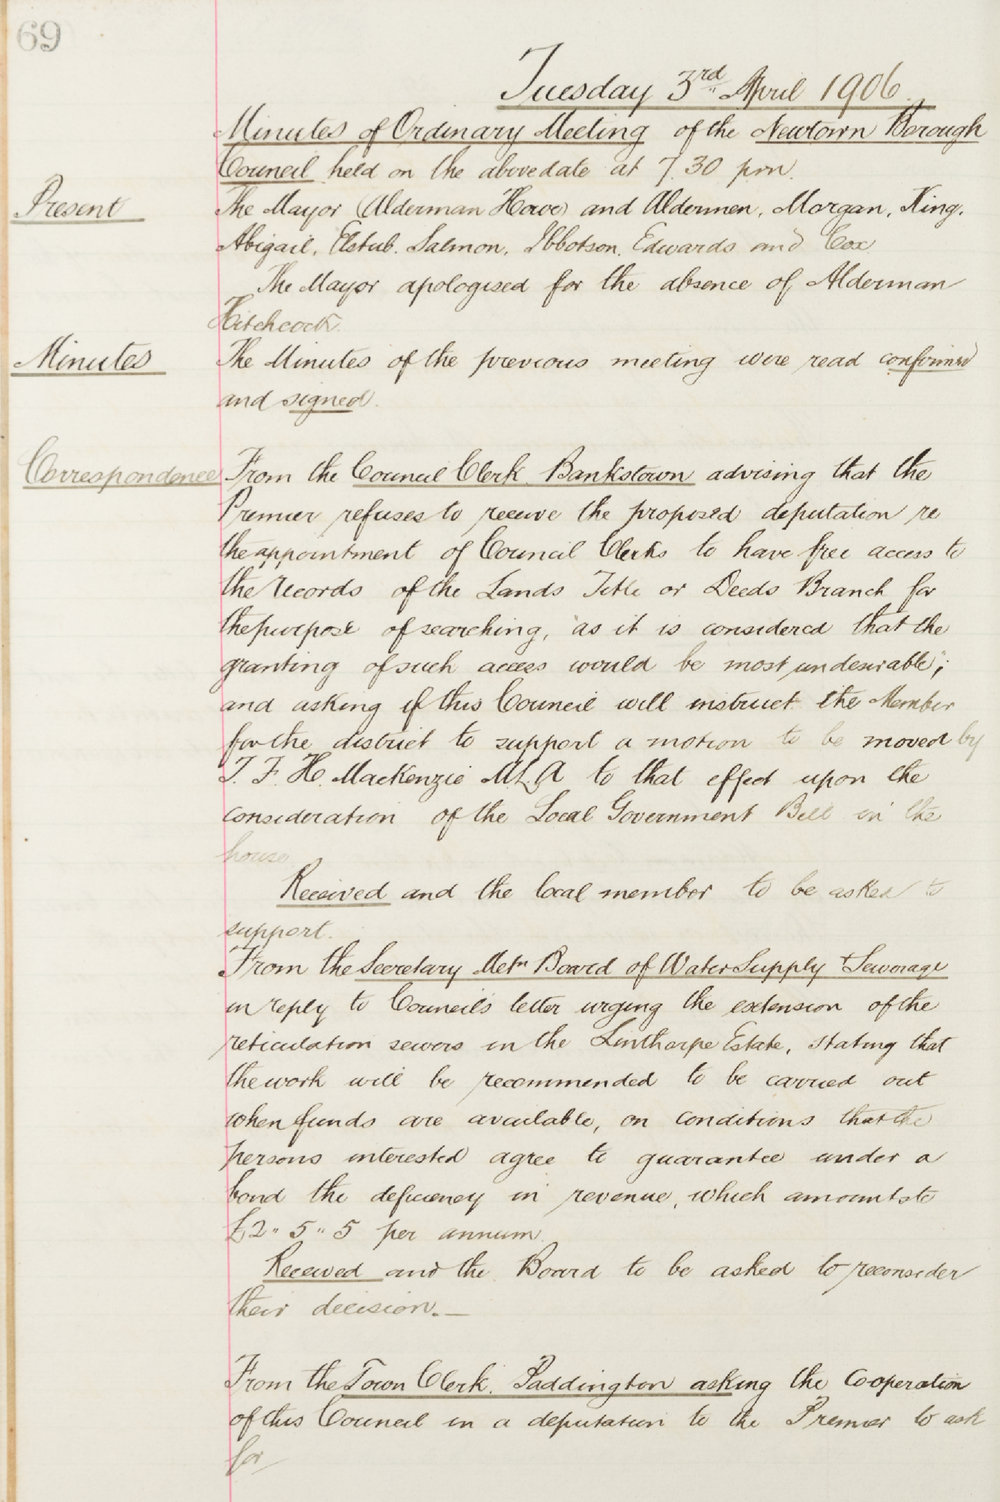 69
Tuesday 3rd April 1906.
Minutes of Ordinary Meeting of the Newtown Borough
Council held on the abovedate at 7.30 pm.
Present
The Mayor (Alderman Howe) and Aldermen, Morgan, King,
Abigail, Elstub. Salmon, Ibbotson, Edwards and Cox
The Mayor apologised for the absence of Alderman
Hitchcock.
Minutes
The Minutes of the previous meeting were read confirmed
and signed.
Correspondence
From the Council Clerk Bankstown advising that the
Premier refuses to receive the proposed deputation re
the appointment of Council Clerks to have free access to
the records of the Lands Title or Deeds Branch for
the purpose of searching, "as it is considered that the
granting of such access would be most undesirable";
and asking if this Council will instruct the Member
for the district to support a motion to be moved by
T. F. H. Mackenzie MLA to that effect upon the
consideration of the Local Government Bill in the
house.
Received and the local member to be asked to
support.
From the Secretary Metn Board of Water Supply & Sewerage
in reply to Council's letter urging the extension of the
reticulation sewers in the Linthorpe Estate, stating that
the work will be recommended to be carried out
when funds are available, on conditions that the
persons interested agree to guarantee under a
bond the deficiency in revenue, which amounts to
£2" 5" 5 per annum.
Received and the Board to be asked to reconsider
their decision.—
From the Town Clerk. Paddington asking the Cooperation
of this Council in a deputation to the Premier to ask
for